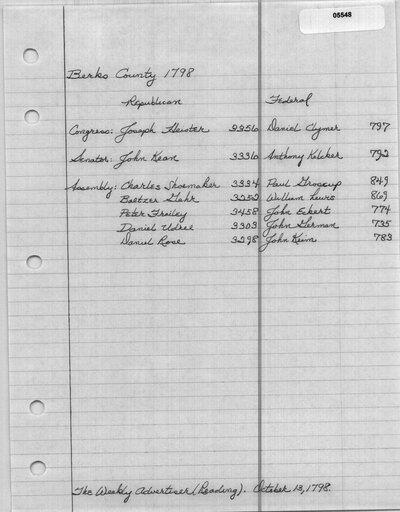 05548
Berks County 1798
Republican Federal
Congress: Joseph Hiester 3356 Daniel Clymer 797
Senator: John Kean 3336 Anthony Kelcker 792
Assembly: Charles Shoemaker 3334 Paul Groscup 849
Baltzer Gehr 3252 William Lewis 869
Peter Frailey 3458 John Eckert 774
Daniel Udree 3303 John German 735
Daniel Rose 3298 John Keim 783
The Weekly Advertiser (Reading). October 13, 1798.